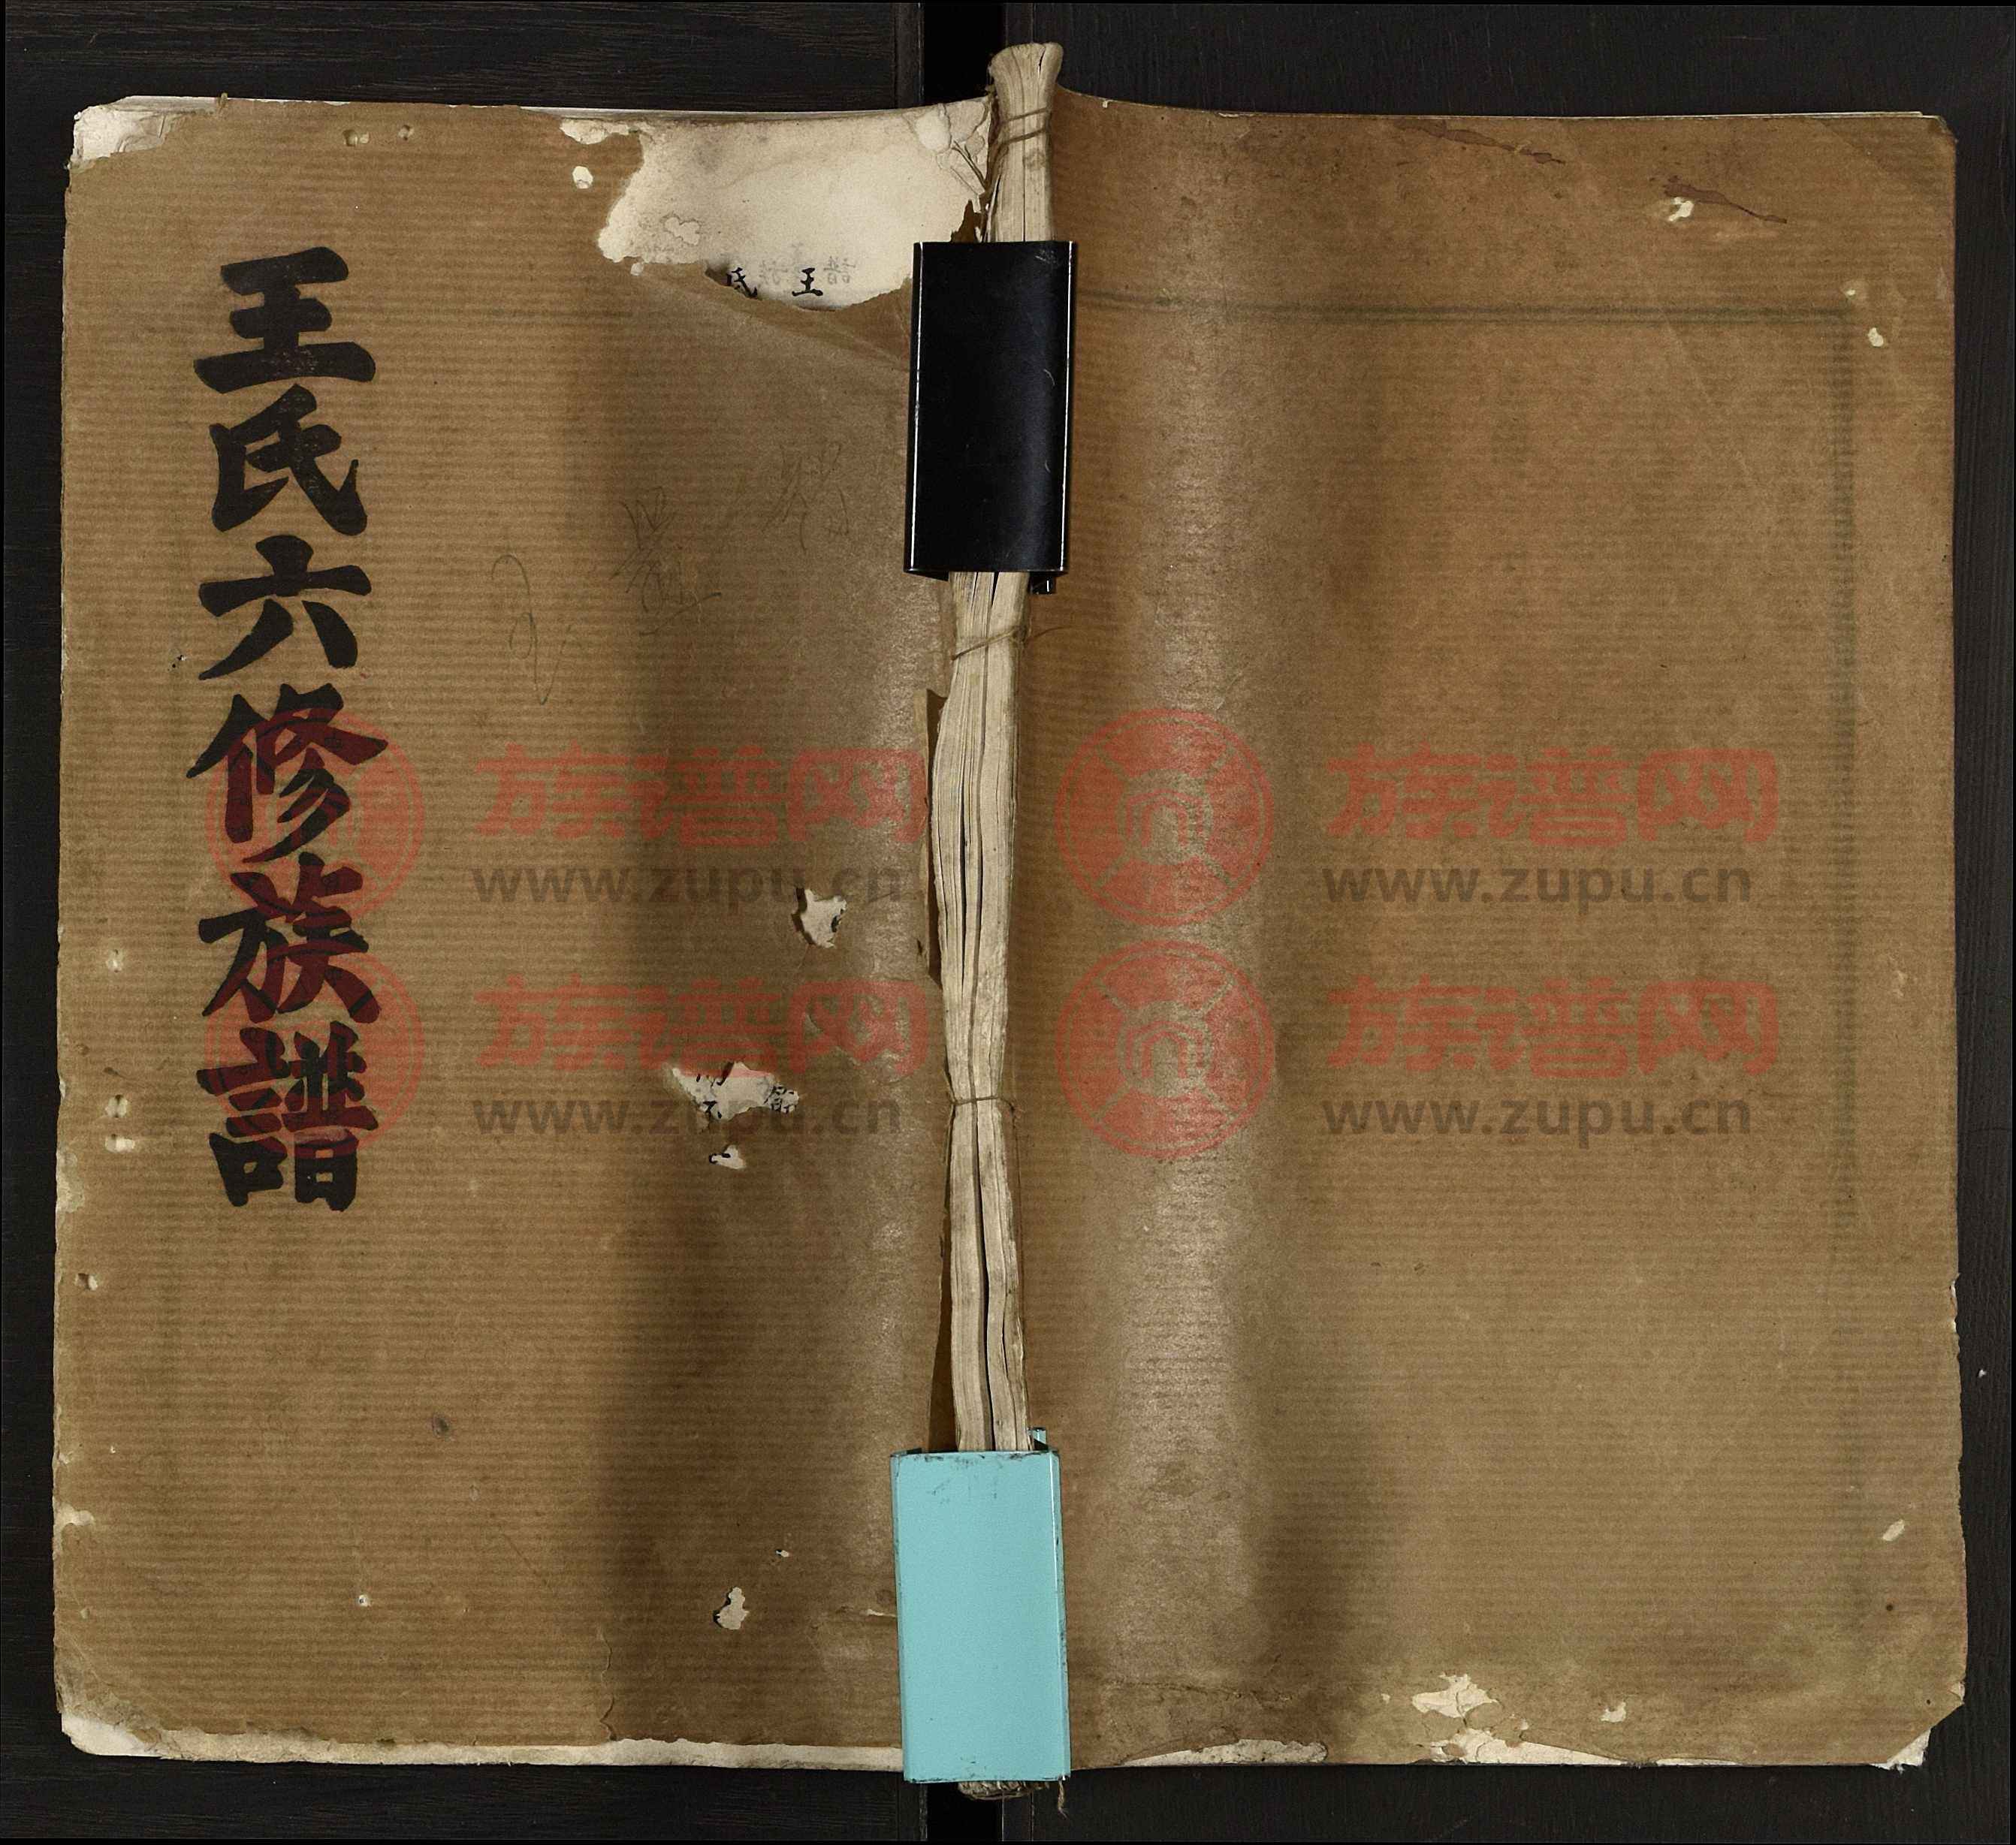 王氏六修族譜
王 氏
族谱网
www.zupu.cn
族谱网
www.zupu.cn
族谱网
www.zupu.cn
族谱网
www.zupu.cn